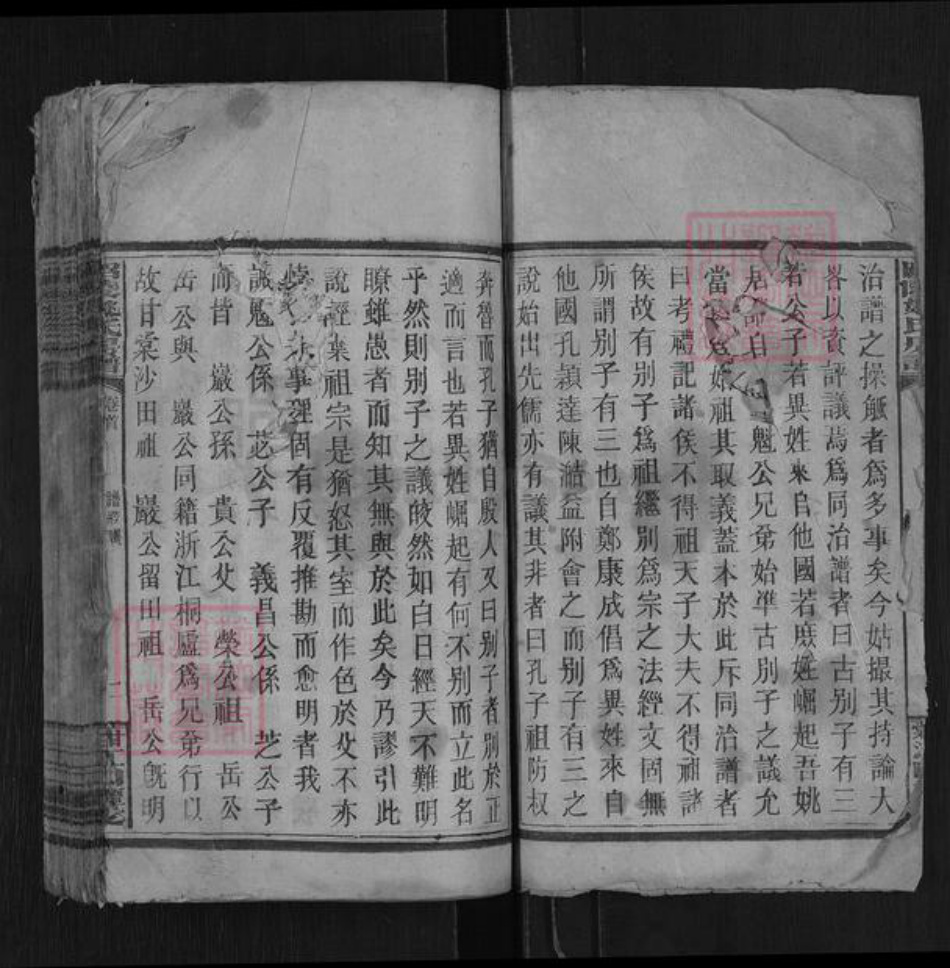 治譜之操觚者爲多事矣今姑撮其持論大
畧以資評議焉爲同治譜者曰古別子有三
若公子若異姓來自他國若庶姓崛起吾姚
魁公兄弟始準古別子之議允
當 祖其取義蓋本於此斥同治譜者
曰考禮記諸侯不得祖天子大夫不得祖諸
侯故有別子爲祖繼別爲宗之法經文固無
所謂別子有三也自鄭康成倡爲異姓來自
他國孔穎達陳澔益附會之而別子有三之
說始出先儒亦有議其非者曰孔子祖防叔
奔魯而孔子猶自殷人又曰別子者別於正
適而言也若異姓崛起有何不別而立此名
乎然則別子之議皎然如白日經天不難明
瞭雖愚者而知其無與於此矣今乃謬引此
說誣衊祖宗是猶怒其室而作色於父不亦
悖 事理固有反覆推勘而愈明者我
誠魁公係 苾公子 義昌公係 芝公子
而昔 巖公孫 貴公父 榮公祖 岳公
岳公與 巖公同籍浙江桐廬爲兄弟行以
故甘棠沙田祖 巖公留田祖 岳公旣明
卷首